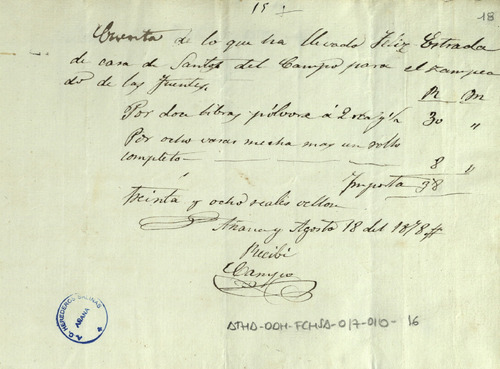 18
Cuenta de lo que ha llevado Feliz Estrada
de casa de Santos del Campo para el
do de las Fuentes,
R M
Por doce libras pólvora á 2 30 "
Por ocho varas mecha mas un rollo
completo 8 "
Importa 38
treinta y ocho reales vellon
Añana y Agosto 18 del 1878
Recibi
Campo
A.C. HEREDEROS SALINAS
AÑANA
ATHA-DAH-FCHSA-017-010-16